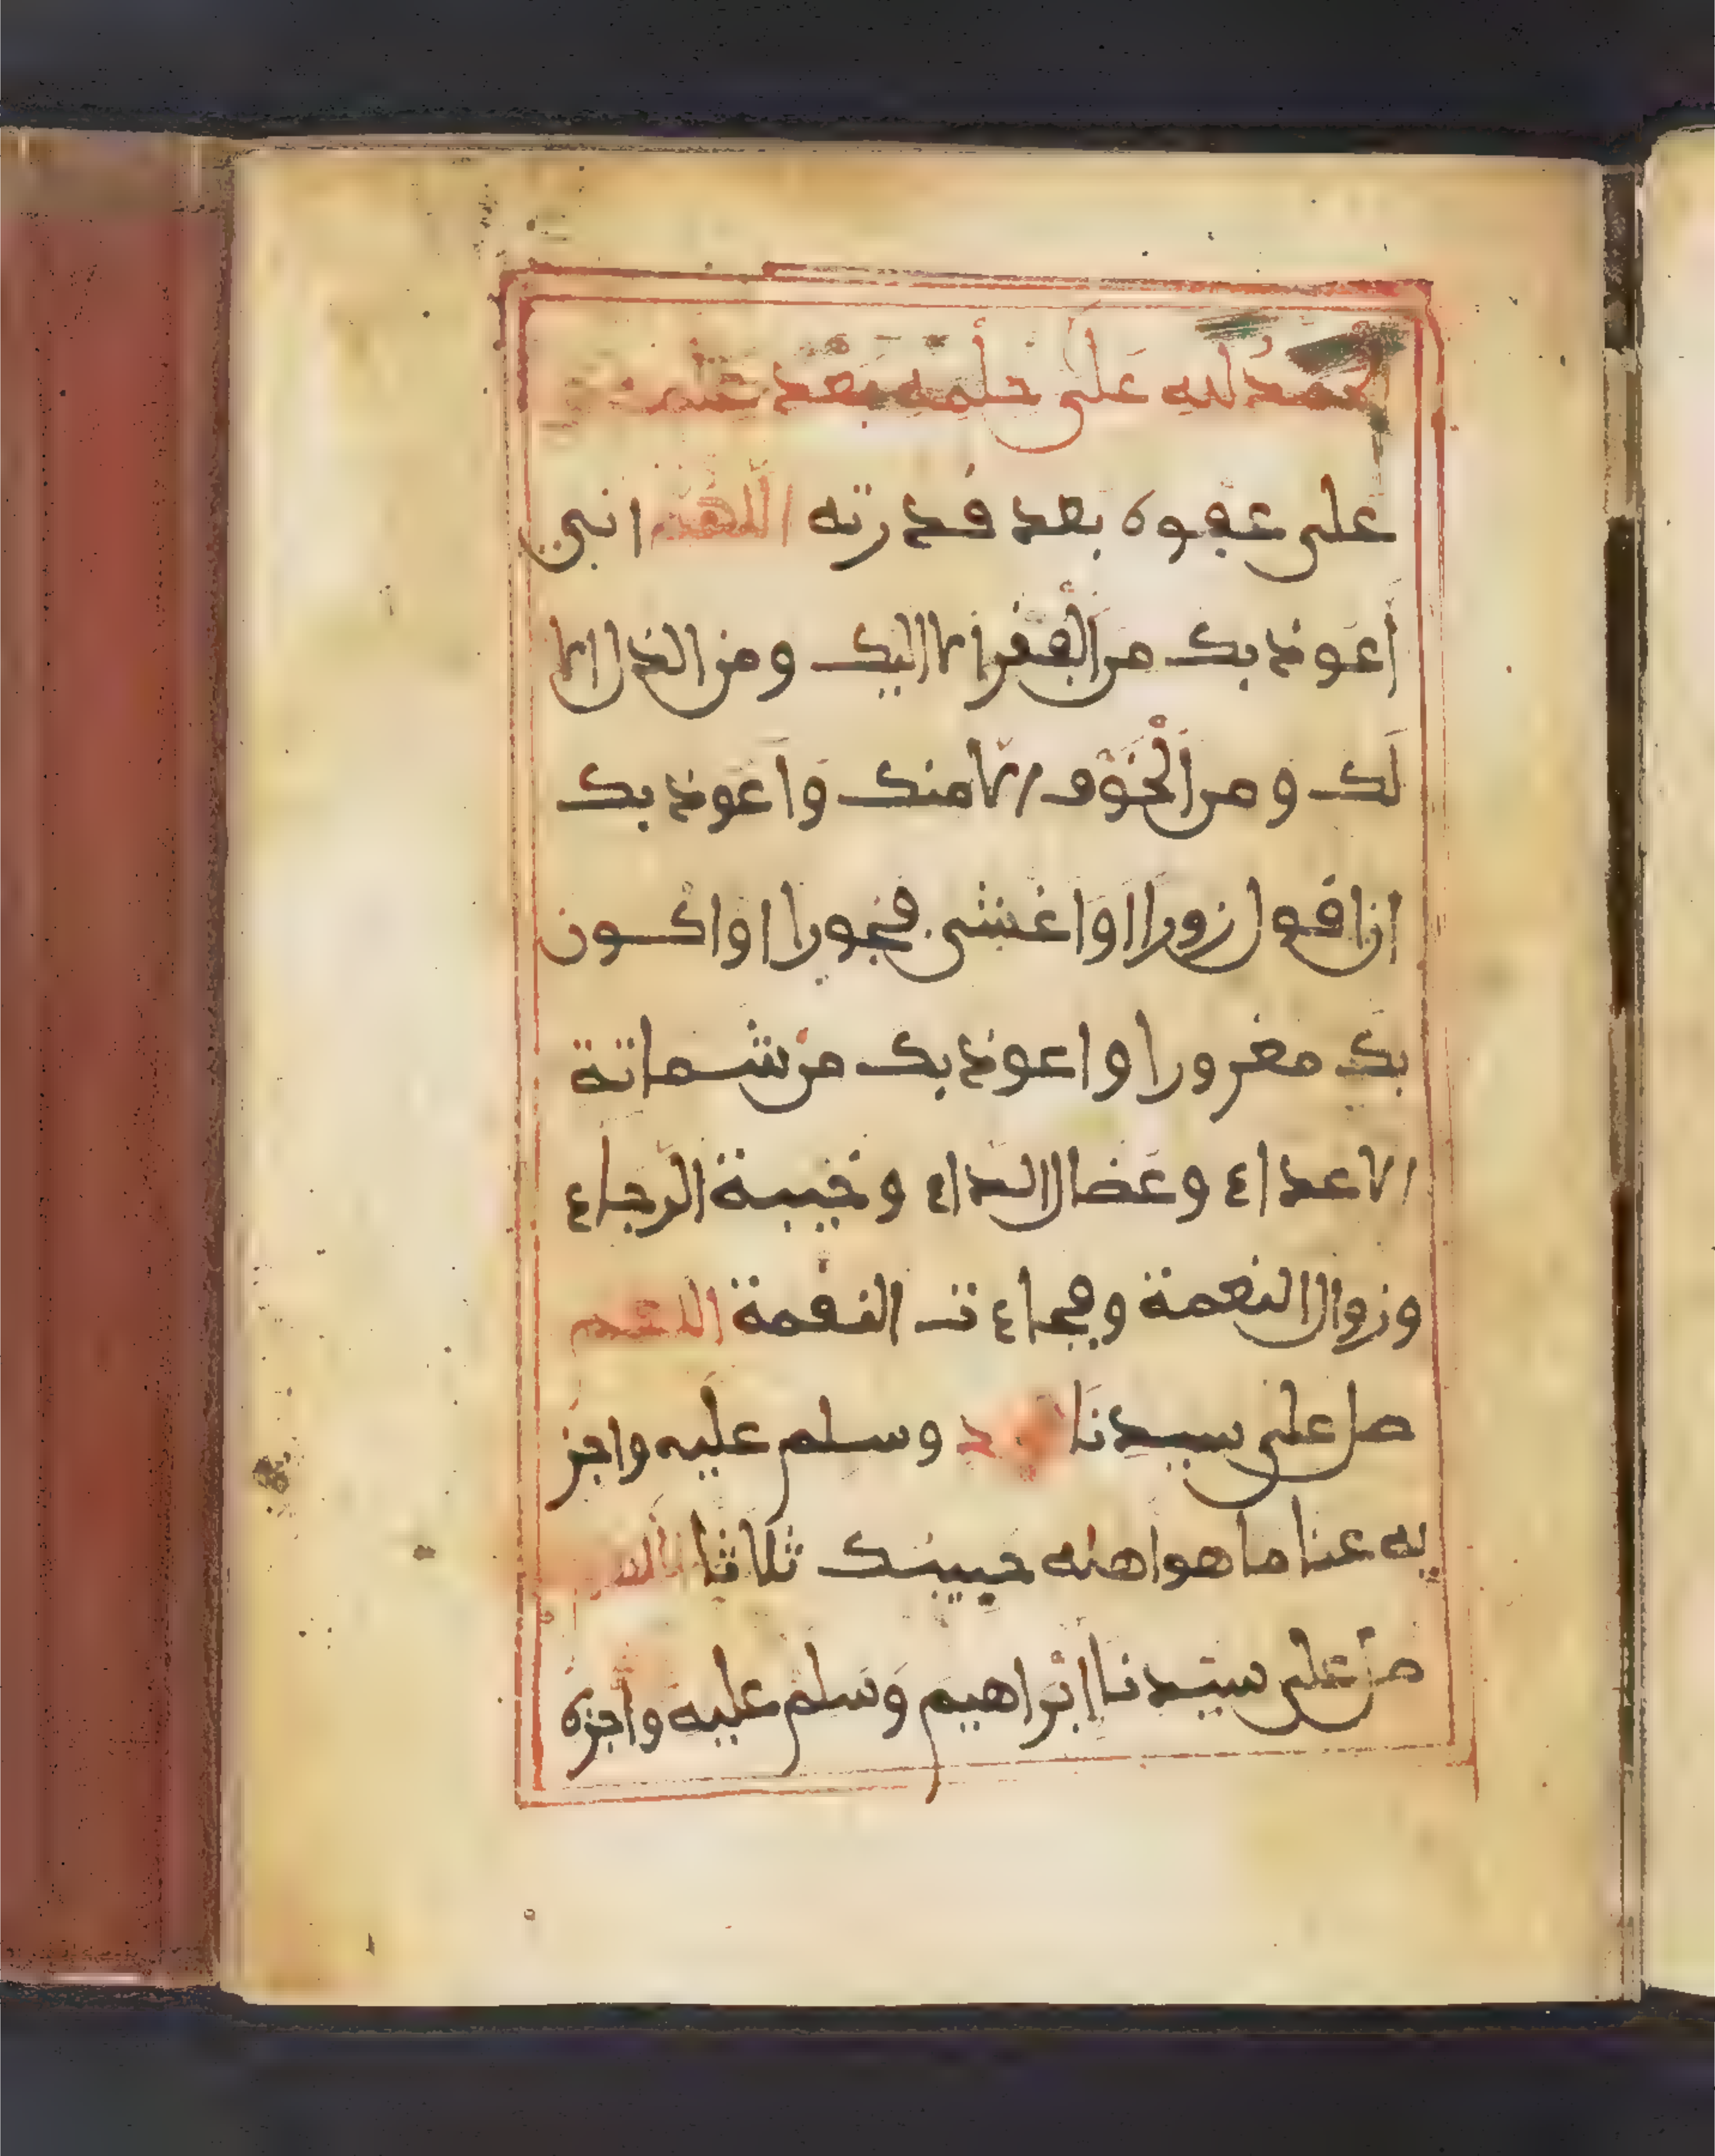 الحمد لله على حلمه بعد علمه
على عفوه بعد قدرته اللهم اني
أعوذ بك من الفقر الا اليك ومن الذل الا
لك ومن الخوف الا منك واعوذ بك
ان اقول زورا او اغشى فجورا او اكون
بك مغرورا واعوذ بك من شماتة
الاعداء وعضال الداء وخيبة الرجاء
وزوال النعمة وفجاءة النقمة اللهم
صل على سيدنا محمد وسلم عليه واجز
يه عنا ما هو اهله حبيبك ثلاثا اللهم
صل على سيدنا ابراهيم وسلم عليه واجزه